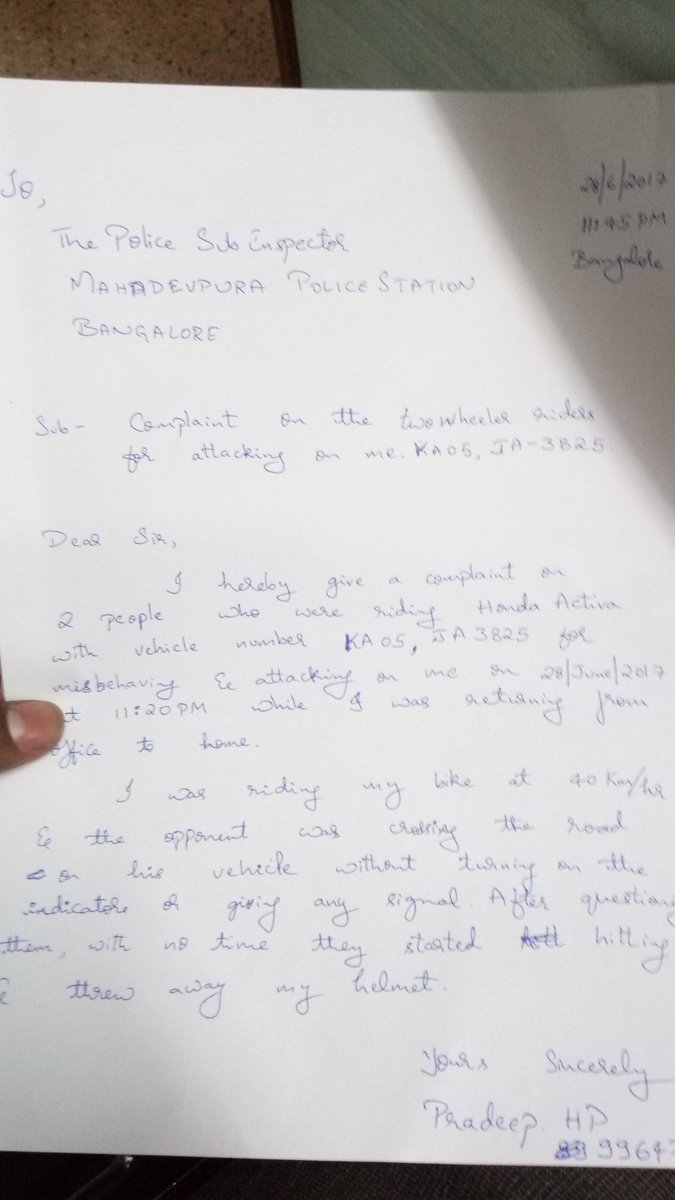 To,
28/6/2017
11:45 PM
Bangalore
The Police Sub Inspector
MAHADEVPURA POLICE STATION
BANGALORE
Sub - Complaint on the two wheeler riders
for attacking on me. KA05, JA-3825.
Dear Sir,
I hereby give a complaint on
2 people who were riding Honda Activa
with vehicle number KA05, JA 3825 for
misbehaving & attacking on me on 28/June/2017
at 11:20PM while I was returning from
office to home.
I was riding my bike at 40 Km/hr
& the opponent was crossing the road
on his vehicle without turning on the
indicators or giving any signal. After questiong
them, with no time they started hitting
& threw away my helmet.
Yours Sincerely
Pradeep. HP